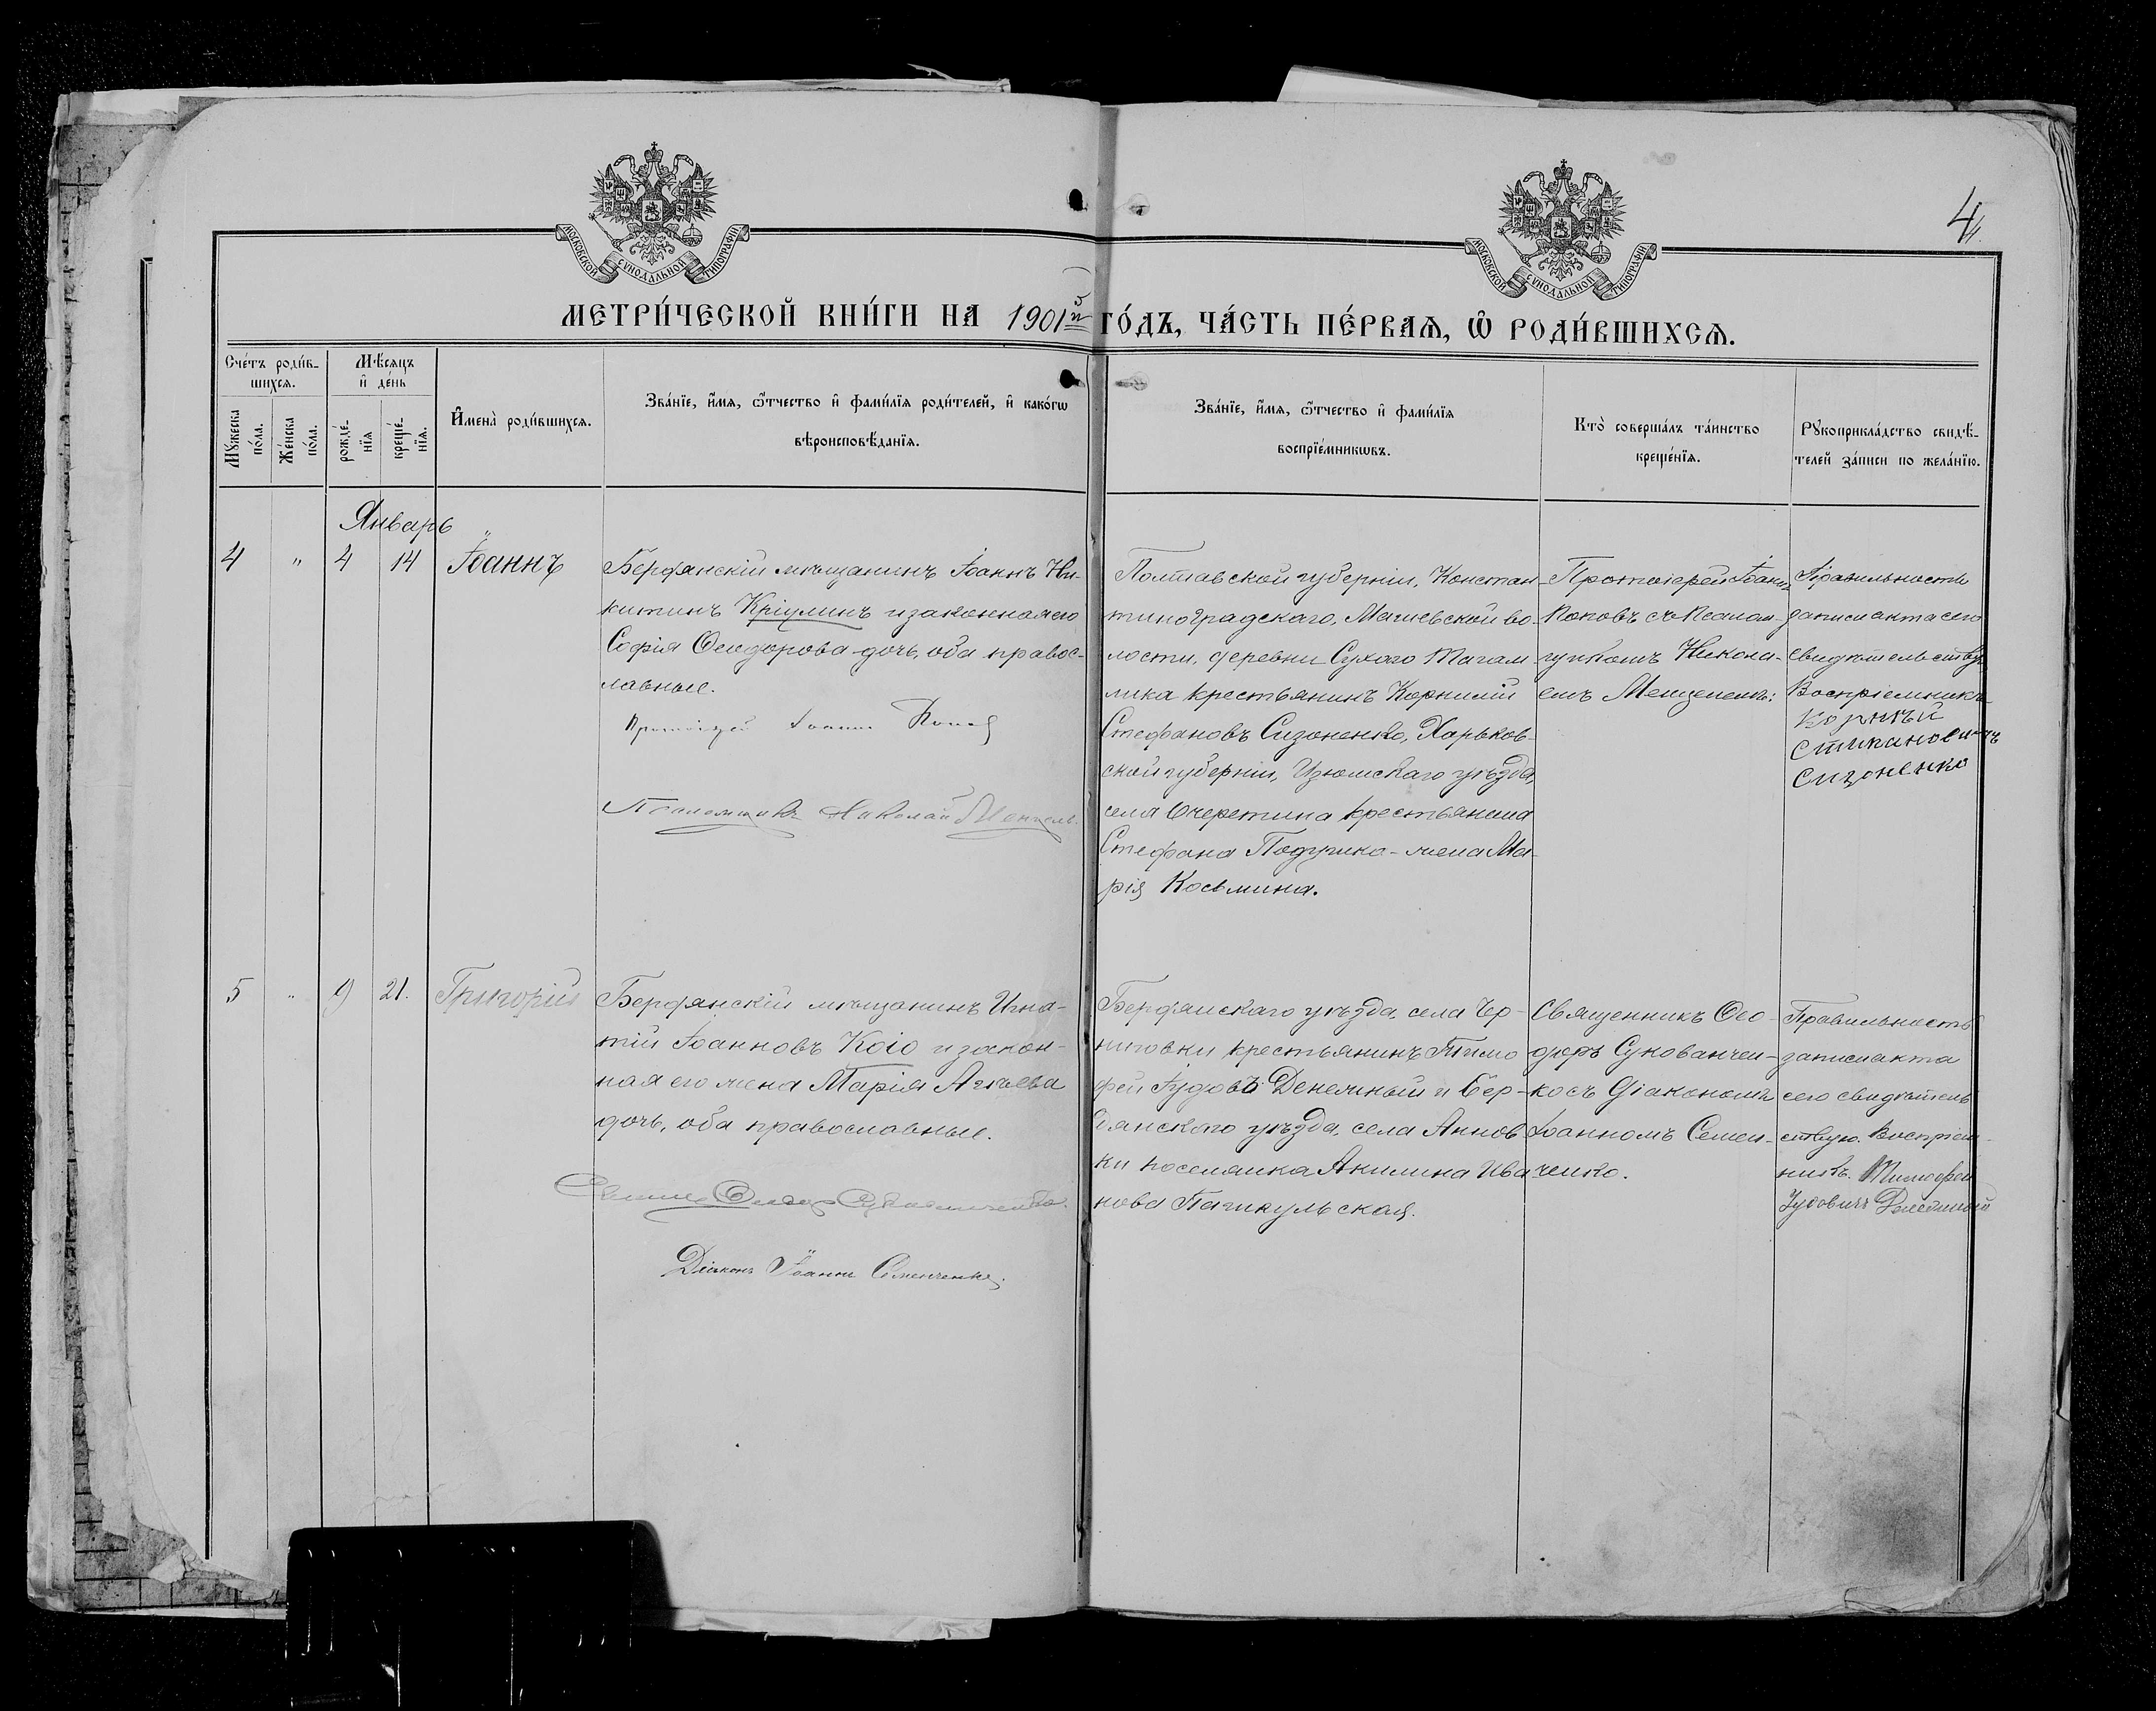 МОСКОВСКОЙ СУНОДАЛЬНОЙ ТИПОГРАФІИ
МОСКОВСКОЙ СУНОДАЛЬНОЙ ТИПОГРАФІИ
4
МЕТРИ́ЧЕСКОЙ КНИ́ГИ НА 1901й ГО́ДЪ, ЧА́СТЬ ПЕ́РВАѦ, Ѡ РОДИ́ВШИХСѦ.
Сче́тъ роди́в-
шихсѧ.
Мѣ́сѧцъ
и де́нь
Мꙋ́жеска
по́ла.
Же́нска
по́ла.
рожде́-
нїѧ
креще́-
нїѧ.
Имена̀ роди́вшихсѧ.
Зва́нїе, и́мѧ, ѻ́тчество и фами́лїѧ роди́телей, и како́гѡ
вѣроисповѣ́данїѧ.
Зва́нїе, и́мѧ, ѻ́тчество и фами́лїѧ
воспрїе́мникѡвъ.
Кто̀ соверша́лъ та́инство
креще́нїѧ.
Рꙋкоприкла́дство свидѣ́-
телей за́писи по жела́нїю.
Январь
4 " 4 14 Іоаннъ
Бердянскій мѣщанинъ Іоаннъ Ни-
китинъ Кріулинъ и законная его
Софія Ѳеодорова дочь, оба правос-
лавные.
Протоіерей Іоаннъ Поповъ
Псаломщикъ Николай
Полтавской губерніи, Констан-
тиноградскаго, Мачевской во-
лости, деревни Сухого Тагам
лика крестьянинъ Корнилій
Стефановъ Сизоненко, Харьков-
ской губерніи, Изюмскаго уѣзда,
села Очеретина крестьянина
Стефана жена Ма-
рія Косьмина.
Протоіерей Іоаннъ
Поповъ съ Псалом-
щикомъ Никола-
емъ
Правильность
записи акта сего
свидѣтельствую
Воспріемникъ
Корнѣй
Стипановичъ
Сизоненко
5 " 9 21. Григорій
Бердянскій мѣщанинъ Игна-
тій Іоанновъ Койо и закон-
ная его жена Марія
дочь, оба православные.
Діаконъ Іоаннъ Семенченко.
Бердянскаго уѣзда, села Чер-
ниговки крестьянинъ Тимо
фей Іудовъ Денежный и Бер-
дянского уѣзда, села Аннов
ки поселянка Акилина Ива
нова
Священникъ Ѳео-
доръ Сукованчен-
ко съ діакономъ
Іоанномъ Семен-
ченко.
Правильность
записи акта
сего свидѣтель
ствую. Воспріем-
никъ. Тимофей
Іудовичъ Денежный